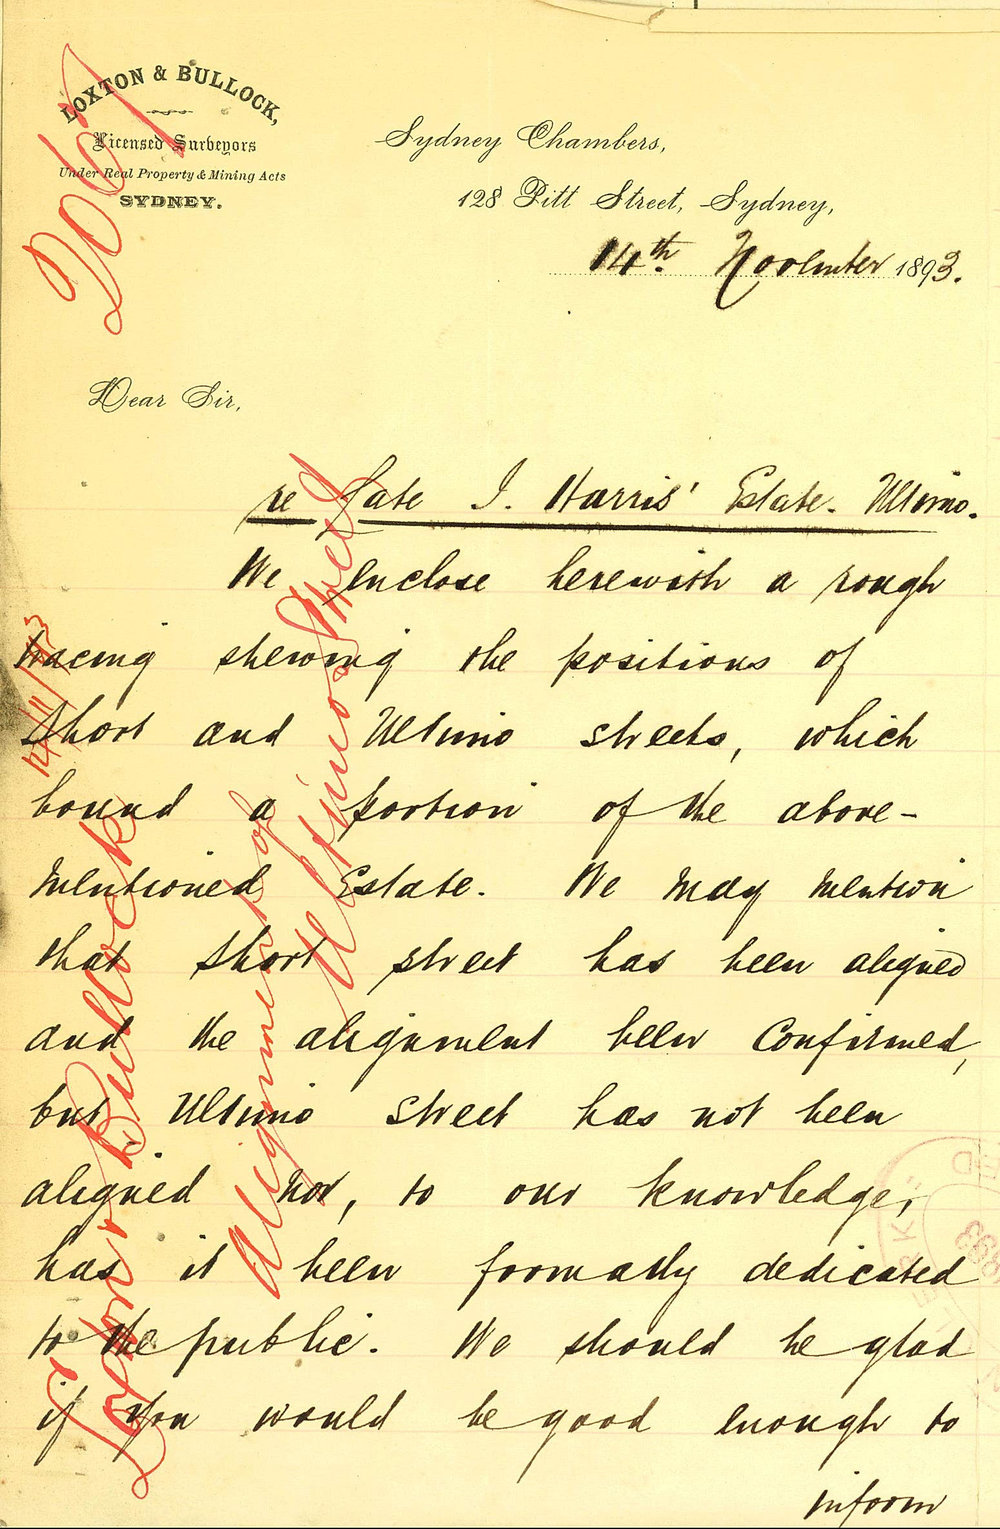 LOXTON & BULLOCK,
Licensed Surveyors
Under Real Property & Mining Acts
SYDNEY.
Sydney Chambers,
128 Pitt Street, Sydney,
14th. November 1893.
Dear Sir,
re Late J. Harris' Estate. Ultimo.
We enclose herewith a rough
tracing shewing the positions of
Short and Ultimo streets, which
bound a portion of the above-
mentioned Estate. We may mention
that Short street has been aligned
and the alignment been confirmed,
but Ultimo Street has not been
aligned nor, to our knowledge,
has it been formally dedicated
to the public. We should be glad
if you would be good enough to
inform
Loxton & Bullock
14/11/93
Alignment of
Ultimo Street